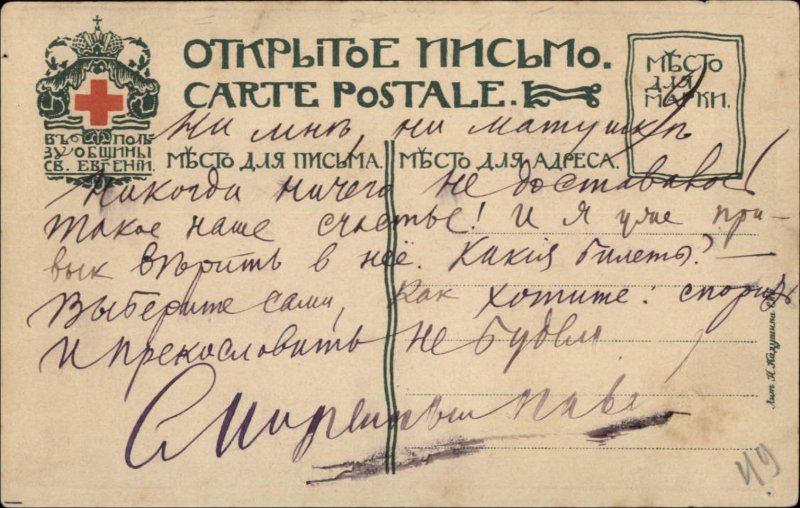 ОТКРЫТОЕ ПИСЬМО.
CARTE POSTALE.
МѢСТО
ДЛЯ
МАРКИ.
ВЪ ПОЛЬ
ЗУ ОБЩИНЫ
СВ. ЕВГЕНІИ.
МѢСТО ДЛЯ ПИСЬМА.
МѢСТО ДЛЯ АДРЕСА.
Ни мнѣ, ни матушкѣ
никогда ничего не доставалось!
Такое наше счастье! И я уже при-
вык вѣрить в неё. Какія билеты? —
Выберите сами, как хотите: спорить
и прекословить не будем
Смиренный
Лит. Н. Кадушина
49